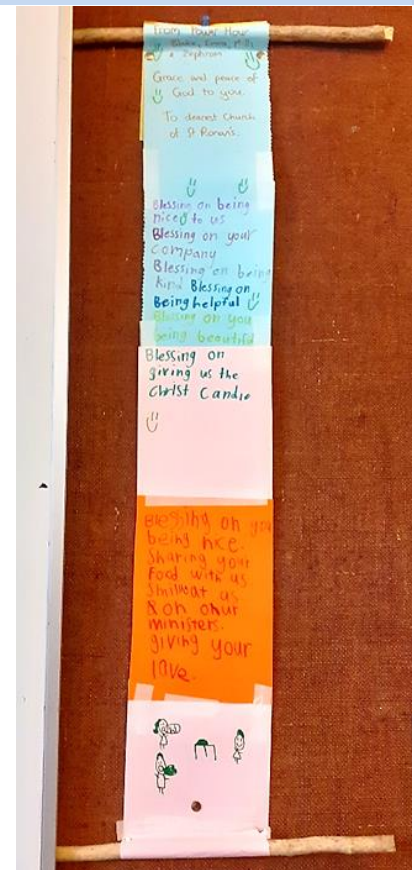 From Power Hour
Blake, Emma,
& Zephram
Grace and peace of
God to you
To dearest Church
of St Ronan's.
Blessing on being
nice to us
Blessing on your
company
Blessing on being
kind Blessing on
Being helpful
Blessing on you
being beautiful
Blessing on
giving us the
Christ Candle
Blessing on you
being nice.
Sharing your
Food with us
Smill at us
& on ohur
ministers.
giving your
love.